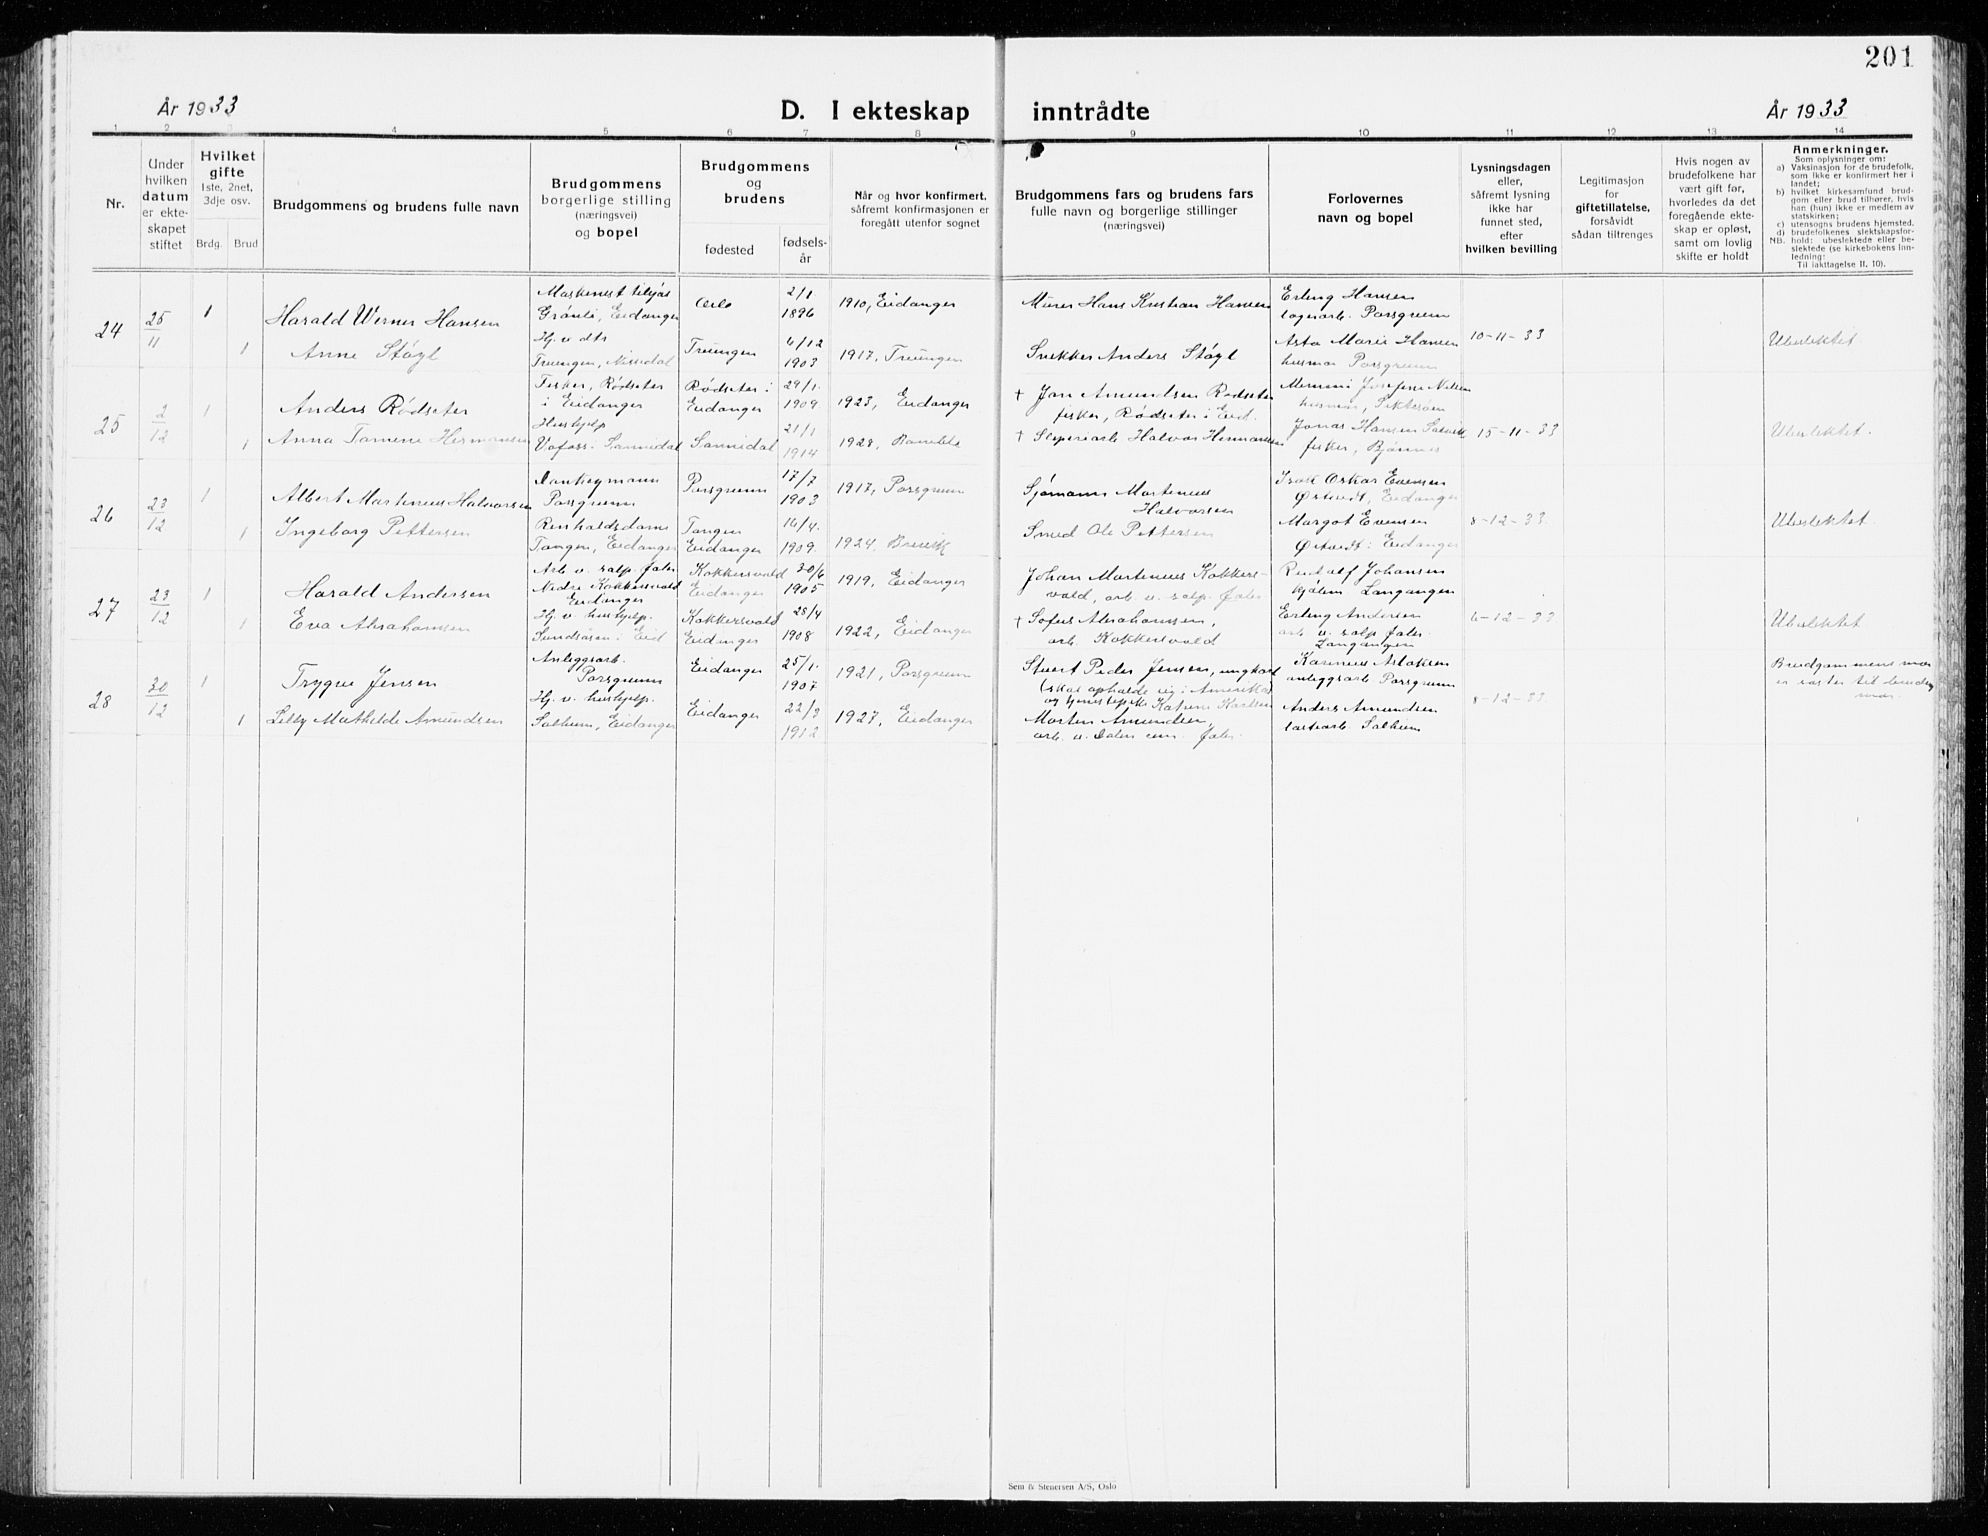 201
År 1933
D. I ekteskap inntrådte
År 1933
1 2 3 4 5 6 7 8 9 10 11 12 13 14
Nr.
Under
hvilken
datum
er ekte-
skapet
stiftet
Hvilket
gifte
1ste, 2net,
3dje osv.
Brdg. Brud
Brudgommens og brudens fulle navn
Brudgommens
borgerlige stilling
(næringsvei)
og bopel
Brudgommens
og
brudens
fødested
fødsels-
år
Når og hvor konfirmert,
såfremt konfirmasjonen er
foregått utenfor sognet
Brudgommens fars og brudens fars
fulle navn og borgerlige stillinger
(næringsvei)
Forlovernes
navn og bopel
Lysningsdagen
eller,
såfremt lysning
ikke har
funnet sted,
efter
hvilken bevilling
Legitimasjon
for
giftetillatelse,
forsåvidt
sådan tiltrenges
Hvis nogen av
brudefolkene har
vært gift før,
hvorledes da det
foregående ekte-
skap er opløst,
samt om lovlig
skifte er holdt
Anmerkninger.
Som oplysninger om:
a) Vaksinasjon for de brudefolk,
som ikke er konfirmert her i
landet;
b) hvilket kirkesamfund brud-
gom eller brud tilhører, hvis
han (hun) ikke er medlem av
statskirken;
c) utensogns brudens hjemsted.
d) brudefolkenes slektskapsfor-
NB. hold: ubeslektede eller be-
slektede (se kirkebokens Inn-
ledning:
Til iakttagelse II, 10).
24
25/11
1
Harald Werner Hansen
Grønli, Eidanger
Oslo
2/1
1896
1910, Eidanger
Murer Hans Kristian Hansen
Erling Hansen
lagerarb. Porsgrunn
1
Anne Støyl
Hj. v. dts
Treungen, Nissedal
Treungen
6/12
1903
1917, Treungen
Snekker Anders Støyl
Asta Marie Hansen
husmor Porsgrunn
10-11-33
Ubeslektet
25
2/12
1
Anders Rødseter
Fisker, Rødseter
i Eidanger
Rødseter i
Eidanger
29/1
1909
1923, Eidanger
+ Jan Amundsen Rødseter
fisker, Rødseter i Eid.
Josefine Nilsen
husmor,
1
Anna Tomine Hermansen
Hushjelp
Vafoss i Sannidal
Sannidal
21/1
1914
1928, Bamble
+ Sliperiarb. Halvor Hermansen
Jonas Hansen
fisker, Bjønnes
15-11-33
Ubeslektet
26
23/12
1
Albert Martinius Halvorsen
Donkeymann
Porsgrunn
Porsgrunn
17/7
1903
1917, Porsgrunn
Sjømann Martinius
Halvorsen
Isak Oskar Evensen
Ørstvedt, Eidanger
1
Ingeborg Pettersen
Renholdsdame
Tangen, Eidanger
Tangen
Eidanger
16/4
1909
1924, Brevik
Smed Ole Pettersen
Margot Evensen
Ørstvedt i Eidanger
8-12-33
Ubeslektet
27
23/12
1
Harald Andersen
Arb. v. salp. fabr.
Nedre Kokkersvold
Eidanger
Kokkersvold
Eidanger
30/6
1905
1919, Eidanger
Johan Martinius Kokkers-
vold, arb. v. salp. fabr.
Rudolf Johansen
Langangen
1
Eva Abrahamsen
Hj. v. hushjelp.
Sundsåsen i Eid
Kokkersvold
Eidanger
28/4
1908
1922, Eidanger
+ Sofus Abrahamsen,
arb. Kokkersvold
Erling Andersen
arb. v. salp. fabr.
Langangen
6-12-33
Ubeslektet
28
30/12
1
Trygve Jensen
Anleggsarb.
Porsgrunn
Eidanger
25/1
1907
1921, Porsgrunn
Stuert Peder Jensen, ungkarl
(skal opholde sig i Amerika)
og tjenestepike Katrine Karlsen
Karinius Aslaksen
anleggsarb. Porsgrunn
Brudgommens mor
er søster til brudens
mor.
1
Lilly Mathilde Amundsen
Hj. v. hushjelp.
Solheim, Eidanger
Eidanger
22/3
1912
1927, Eidanger
Morten Amundsen,
arb. v. Dalen cem. fabr.
Anders Amundsen
Solheim
8-12-33
Sem & Stenersen A/S, Oslo